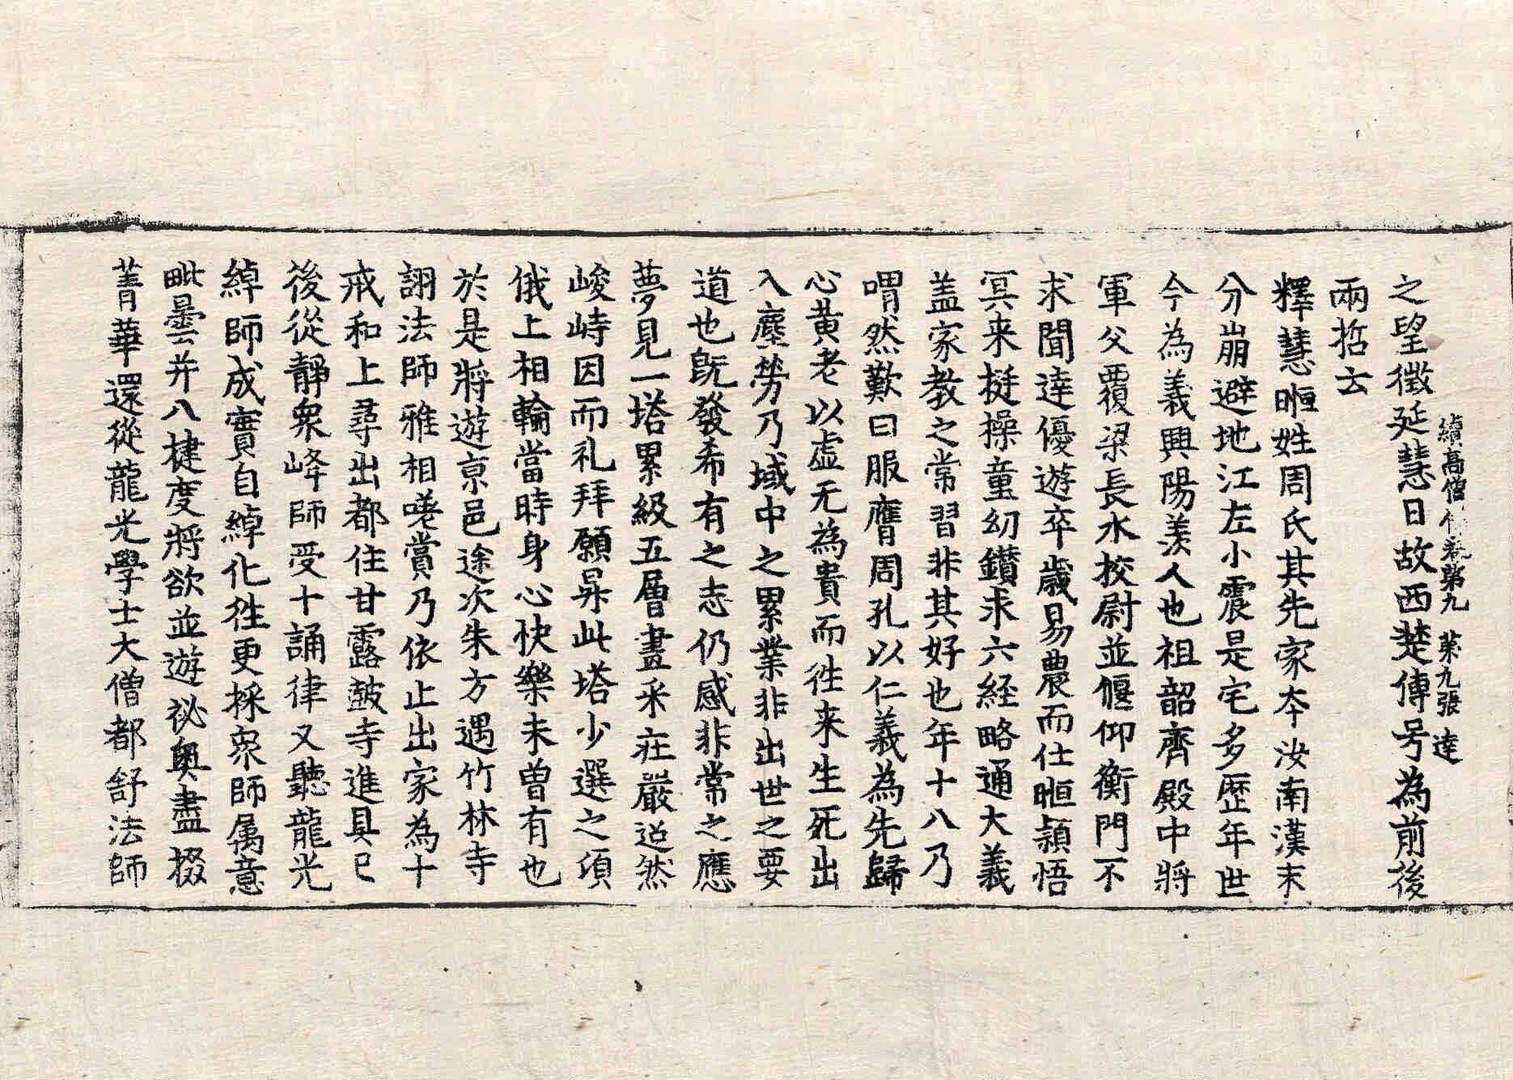 之望徵延慧日故西楚傳号為前後
續高僧傳卷第九 第九張 達
兩哲云
釋慧暅姓周氏其先家夲汝南漢末
分崩避地江左小震是宅多歷年世
今為義興陽羨人也祖韶齊殿中將
軍父覆梁長水校尉並偃仰衡門不
求聞達優遊卒歲易農而仕暅頴悟
冥来挺操童幼鑽求六経略通大義
盖家教之常習非其好也年十八乃
喟然歎曰服膺周孔以仁義為先歸
心黄老以虛无為貴而徃来生死出
入塵勞乃域中之累業非出世之要
道也旣發希有之志仍感非常之應
夢見一塔累級五層畫釆庄嚴迢然
峻峙因而礼拜願昇此塔少選之須
俄上相輪當時身心快樂未曽有也
於是將遊京邑途次朱方遇竹林寺
詡法師雅相嗟賞乃依止出家為十
戒和上尋出都住甘露皷寺進具已
後從靜衆峰師受十誦律又聽龍光
綽師成實自綽化徃更採衆師属意
毗曇并八揵度將欲並遊祕奥盡掇
菁華還從龍光學士大僧都舒法師